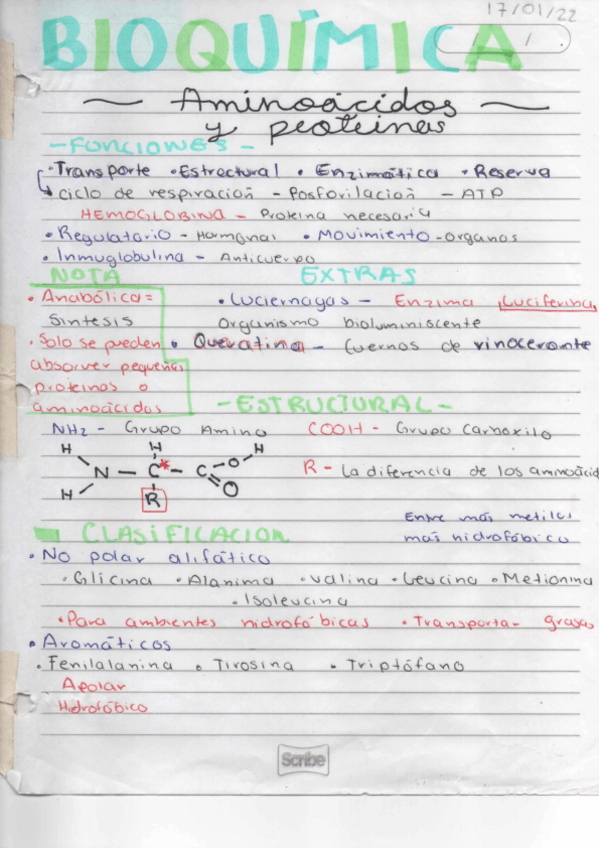 17/01/22
BIOQUÍMICA
Aminoácidos
y proteínas
- FUNCIONES -
• Transporte • Estructural • Enzimática • Reserva
↳ ciclo de respiración - fosforilación - ATP
HEMOGLOBINA - Proteína necesaria
• Regulatorio - Hormonal • Movimiento - organos
• Inmuglobulina - Anticuerpo
NOTA
• Anabólica =
Síntesis
• Solo se pueden
absorver pequeñas
proteínas o
aminoácidos
EXTRAS
• Luciernagas - Enzima Luciferina
Organismo bioluminiscente
• Queratina - Cuernos de rinoceronte
- ESTRUCTURAL -
NH2 - Grupo Amino COOH - Grupo Carboxilo
H H H
N - C* - C - O
H R O
R - La diferencia de los aminoácid
Entre más metilos
más hidrofóbico
CLASIFICACION
• No polar alifático
• Glicina • Alanima • valina • Leucina • Metionina
• Isoleucina
• Para ambientes hidrofóbicas • Transporta- grasas
• Aromáticos
• Fenilalanina • Tirosina • Triptófano
Apolar
Hidrofóbico
Scribe